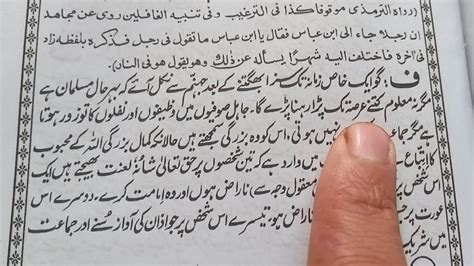 (رواه الترمذی موقوفا کذا فی الترغیب وفی تنبیه الغافلین روی عن مجاهد
ان رجلا جاء الی ابن عباس فقال یا ابن عباس ما تقول فی رجل فذکره بلفظه زاد
فی اخره فاختلف الیه شهرًا یسأله عن ذلک وهو یقول هو فی النار)۔
ف: گو ایک خاص زمانہ تک سزا بھگتنے کے بعد جہنم سے نکل آئے کہ بہرحال مسلمان ہے
مگر نہ معلوم کتنے عرصہ تک پڑا رہنا پڑے گا۔ جاہل صوفیوں میں وظیفوں اور نفلوں کا تو زور ہوتا
ہے مگر نہیں ہوتی، اس کو وہ بزرگی سمجھتے ہیں حالانکہ کمال بزرگی اللہ کے محبوب
کا اتباع میں وارد ہے کہ تین شخصوں پر حق تعالیٰ شانہٗ لعنت بھیجتے ہیں ایک
اس شخص پر معقول وجہ سے) ناراض ہوں اور وہ امامت کرے، دوسرے اس
عورت پر ناراض ہو، تیسرے اس شخص پر جو اذان کی آواز سُنے اور جماعت
میں شریک